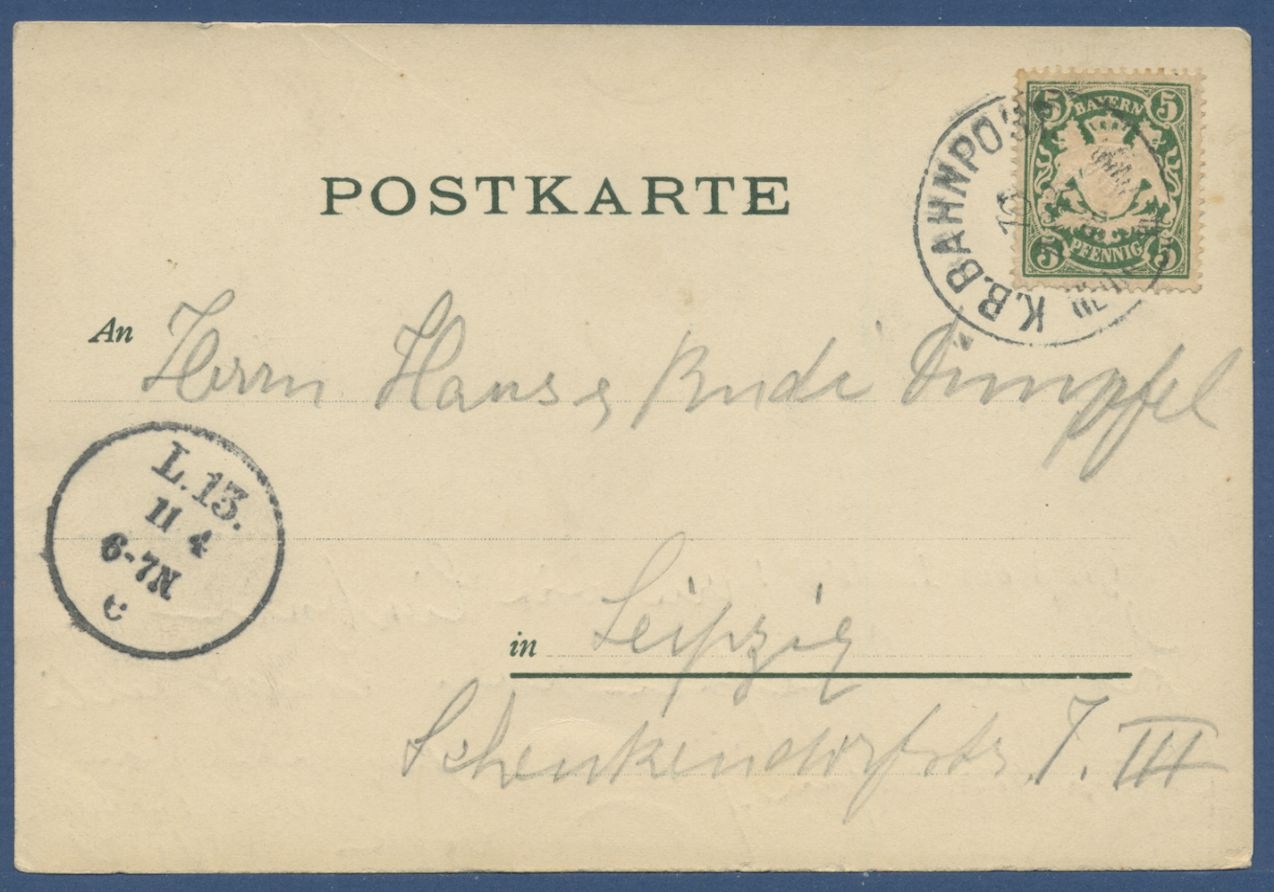 POSTKARTE
5 BAYERN 5
5 PFENNIG 5
K.B.BAHNPOST
An Herrn Hans & Rudi Dumpfel
L.13.
11 4
6-7N
c
in Leipzig
Schenkendorfstr. 7. III